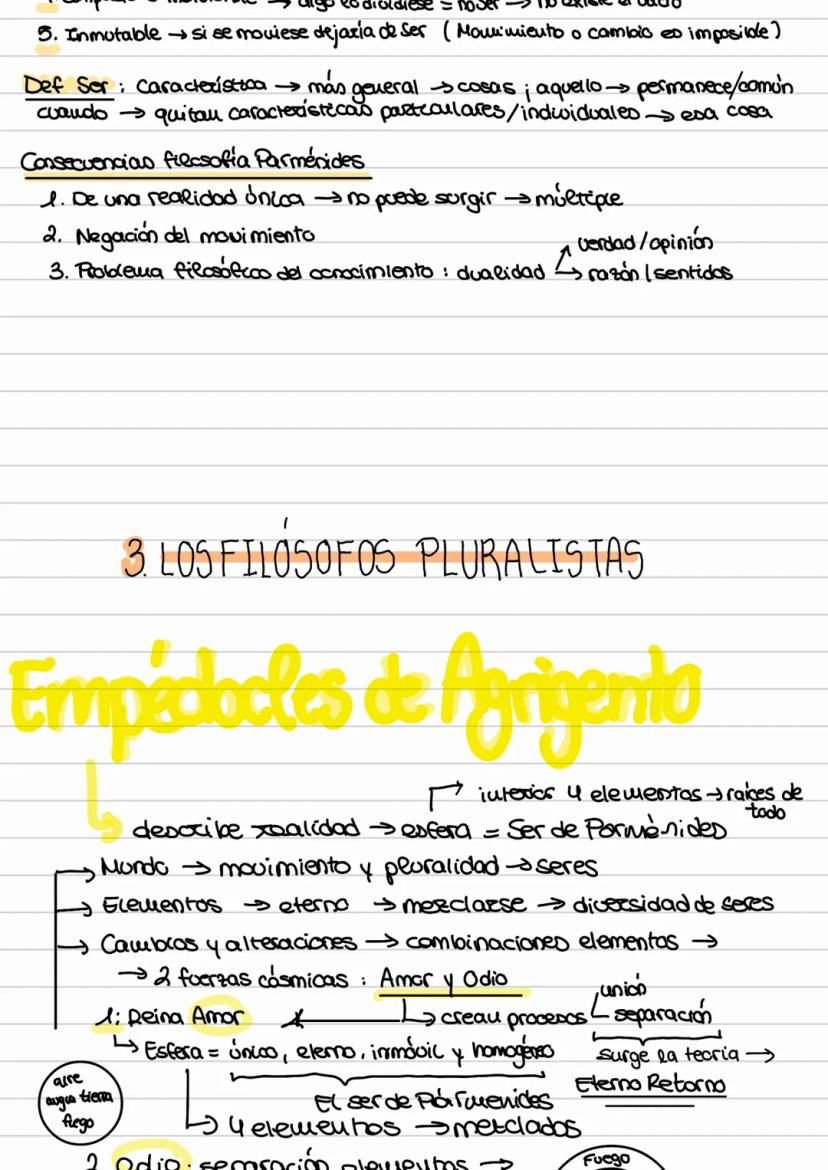 algo es dividiese = no ser → no existe el vacío
5. Inmutable → si se moviese dejaría de Ser ( Movimiento o cambio es imposible )
Def Ser : Característica → más general → cosas ; aquello → permanece/común
cuando → quitan características particulares/individuales → esa cosa
Consecuencias filosofía Parménides
1. De una realidad única → no puede surgir → múltiple
2. Negación del movimiento
verdad/opinión
3. Problema filosóficos del conocimiento : dualidad → razón/sentidos
3. LOS FILÓSOFOS PLURALISTAS
Empédocles de Agrigento
interior 4 elementos → raíces de
todo
describe realidad → esfera = Ser de Parménides
Mundo → movimiento y pluralidad → seres
Elementos → eterno → mezclarse → diversidad de seres
Cambios y alteraciones → combinaciones elementos →
→ 2 fuerzas cósmicas : Amor y Odio
unión
1; Reina Amor → crean procesos separación
Esfera = único, eterno, inmóvil y homogéneo surge la teoría →
Eterno Retorno
El ser de Pármenides
4 elementos → mezclados
aire
augua tierra
fuego
2. Odio : separación elementos →
Fuego